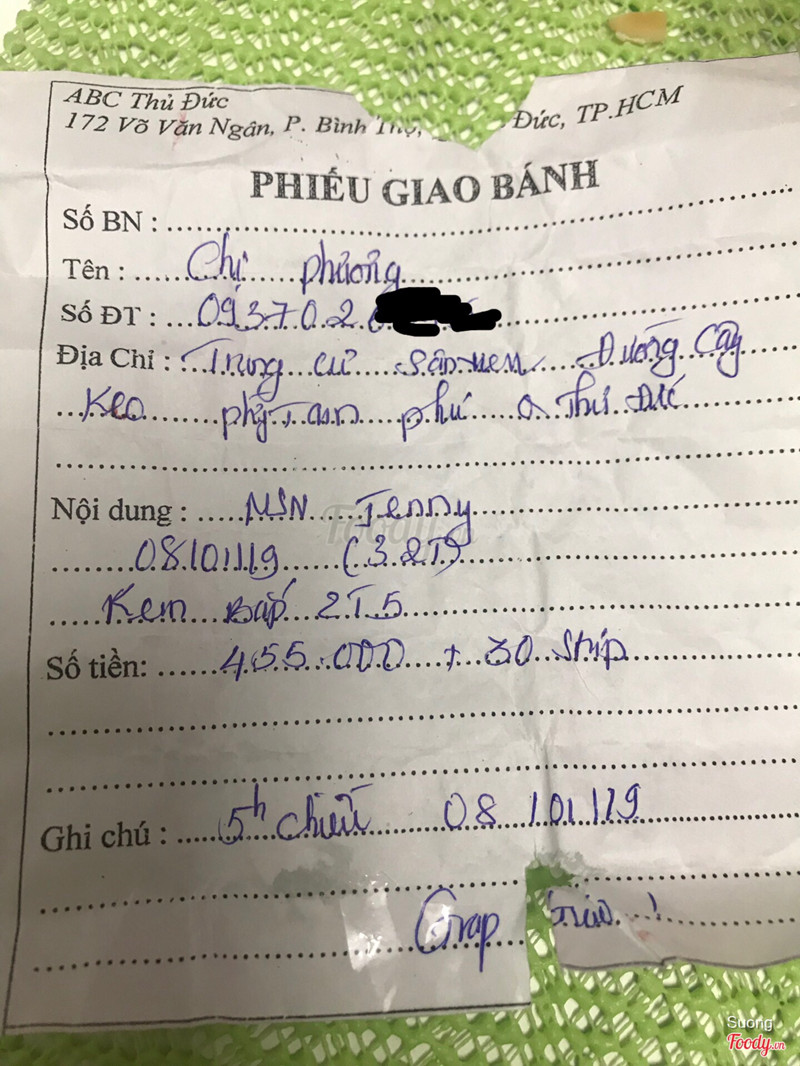 ABC Thủ Đức
172 Võ Văn Ngân, P. Bình Thọ, Đức, TP.HCM
PHIẾU GIAO BÁNH
Số BN :
Tên : Chị phương
Số ĐT : 093702
Địa Chỉ : Trung cư Đường Cây
Keo Tam phú Q Thủ Đức
Nội dung : MSN Jenny
08/01/19 (32T)
Kem Bắp 2T5
Số tiền: 455.000 + 30 Ship
Ghi chú : 5h chiều 08/01/19
Grap
Foody.vn
Suong
Foody.vn